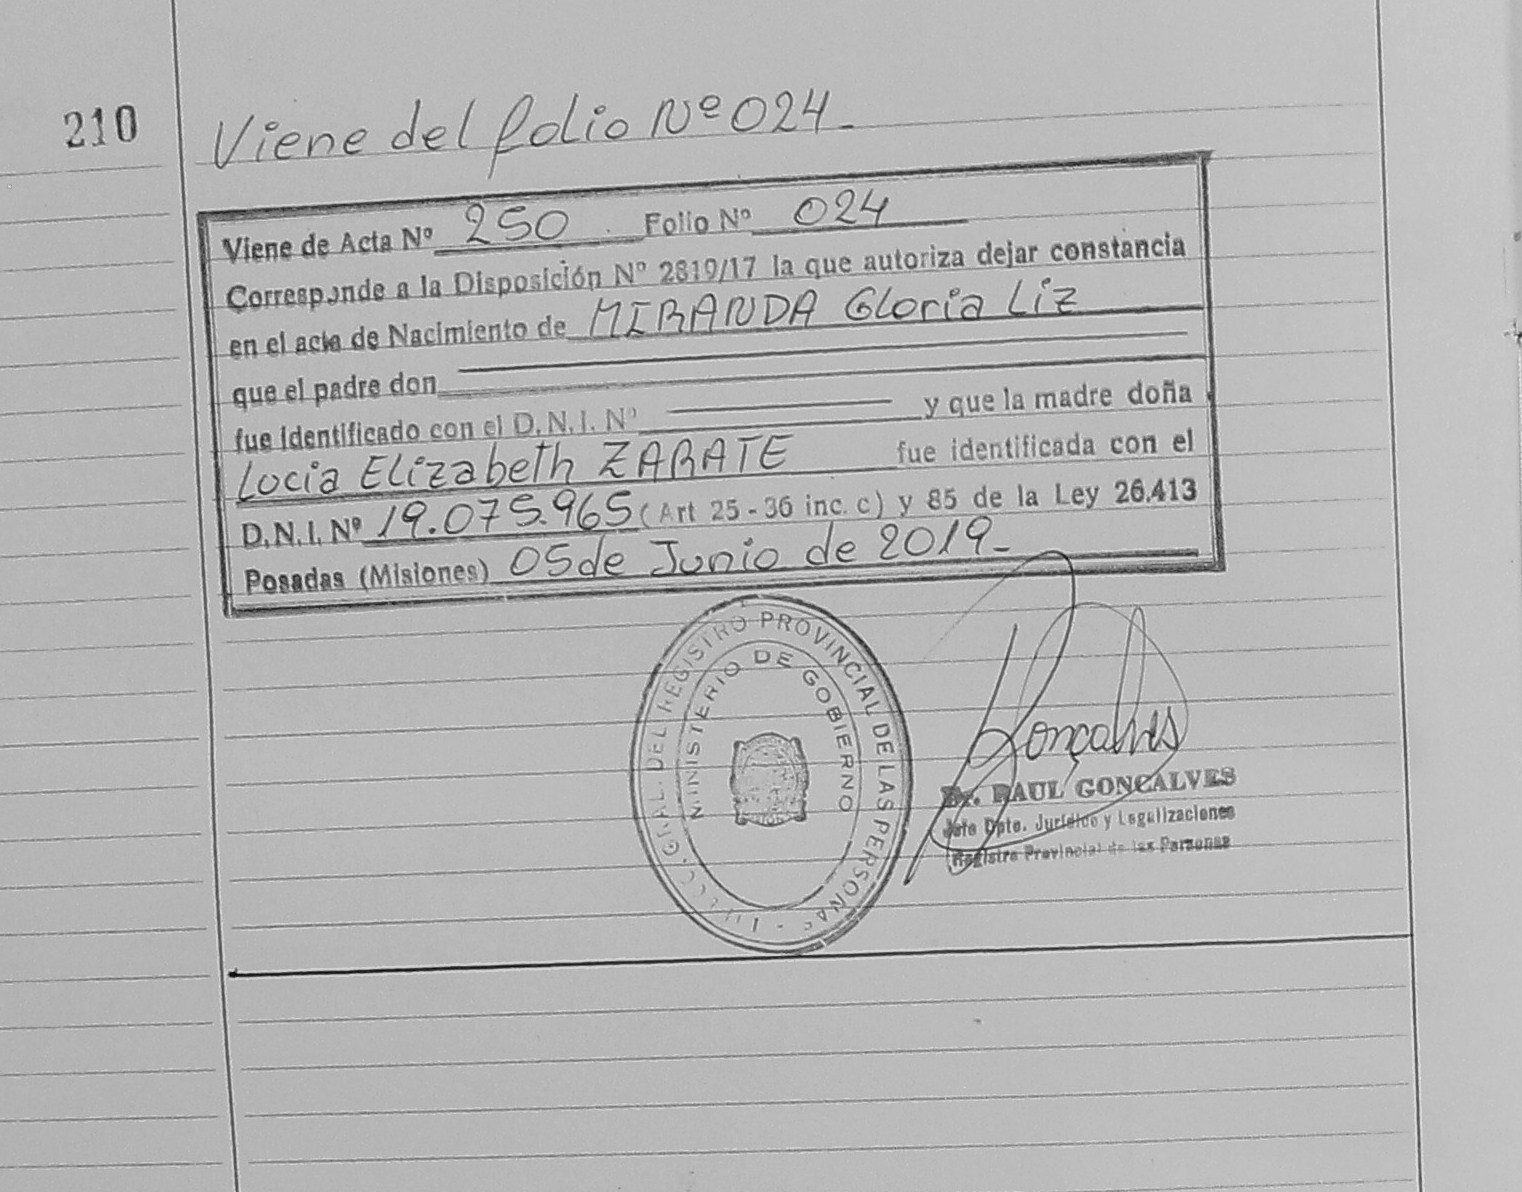 210
Viene del folio Nº 024-
Viene de Acta Nº 250 Folio Nº 024
Corresponde a la Disposición Nº 2819/17 la que autoriza dejar constancia
en el acta de Nacimiento de MIRANDA Gloria Liz
que el padre don
fue identificado con el D.N.I. Nº y que la madre doña
Lucia Elizabeth ZARATE fue identificada con el
D.N.I. Nº 19.075.965 (Art 25 - 36 inc. c) y 85 de la Ley 26.413
Posadas (Misiones) 05 de Junio de 2019-
GRAL. DEL REGISTRO PROVINCIAL DE LAS PERSONAS
MINISTERIO DE GOBIERNO
Gonçalves
Dr. RAUL GONCALVES
Jefe Dpto. Jurídico y Legalizaciones
Registro Provincial de las Personas